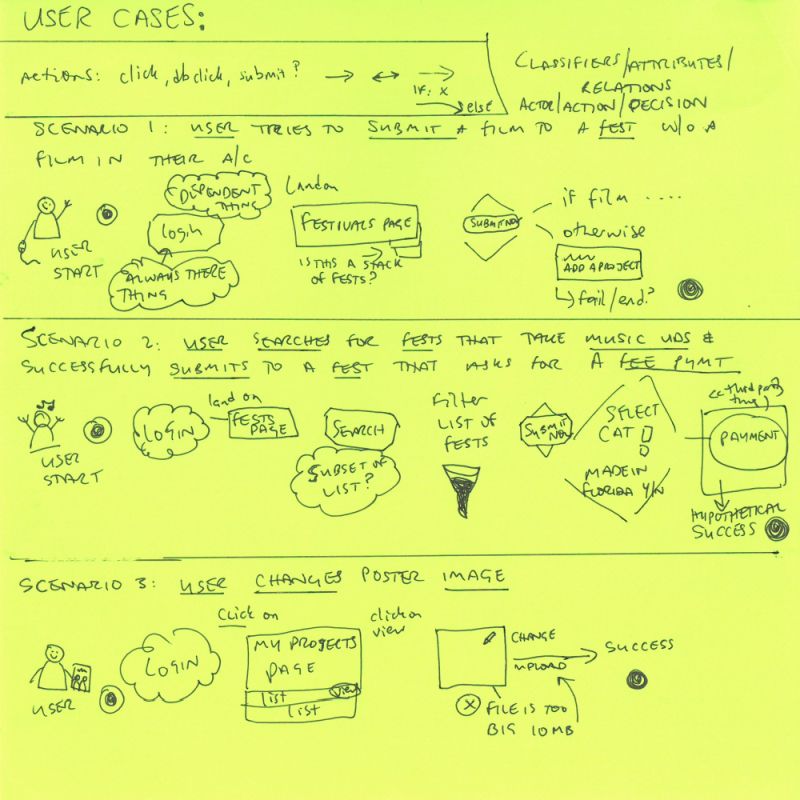 USER CASES:
ACTIONS: click, dbclick, submit?
IF: X
else
CLASSIFIERS/ATTRIBUTES/
RELATIONS
ACTOR/ACTION/DECISION
SCENARIO 1: USER TRIES TO SUBMIT A FILM TO A FEST W/O A
FILM IN THEIR A/C
USER
START
DEPENDENT
THING
login
ALWAYS THERE
THING
Land on
FESTIVALS PAGE
IS THIS A STACK
OF FESTS?
SUBMIT NOW
if film ....
otherwise
ADD A PROJECT
fail/end?
SCENARIO 2: USER SEARCHES FOR FESTS THAT TAKE MUSIC VIDS &
SUCCESSFULLY SUBMITS TO A FEST THAT ASKS FOR A FEE PYMT
USER
START
LOGIN
land on
FESTS
PAGE
SEARCH
SUBSET OF
LIST?
Filter
LIST OF
FESTS
SUBMIT
NOW
SELECT
CAT
MADE IN
FLORIDA Y/N
<<third party
thing>
PAYMENT
HYPOTHETICAL
SUCCESS
SCENARIO 3: USER CHANGES POSTER IMAGE
USER
LOGIN
Click on
MY PROJECTS
PAGE
list
view
list
click on
view
CHANGE
UPLOAD
SUCCESS
X
FILE IS TOO
BIG 10MB